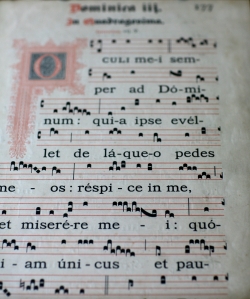 Dominica iij.
in Quadragesima.
OCULI me-i sem-
per ad Dómi-
num: qui-a ipse evél-
let de lá-que-o pedes
me - os: réspi - ce in me,
et miseré-re me - i: quó-
i - am úni - cus et pau-